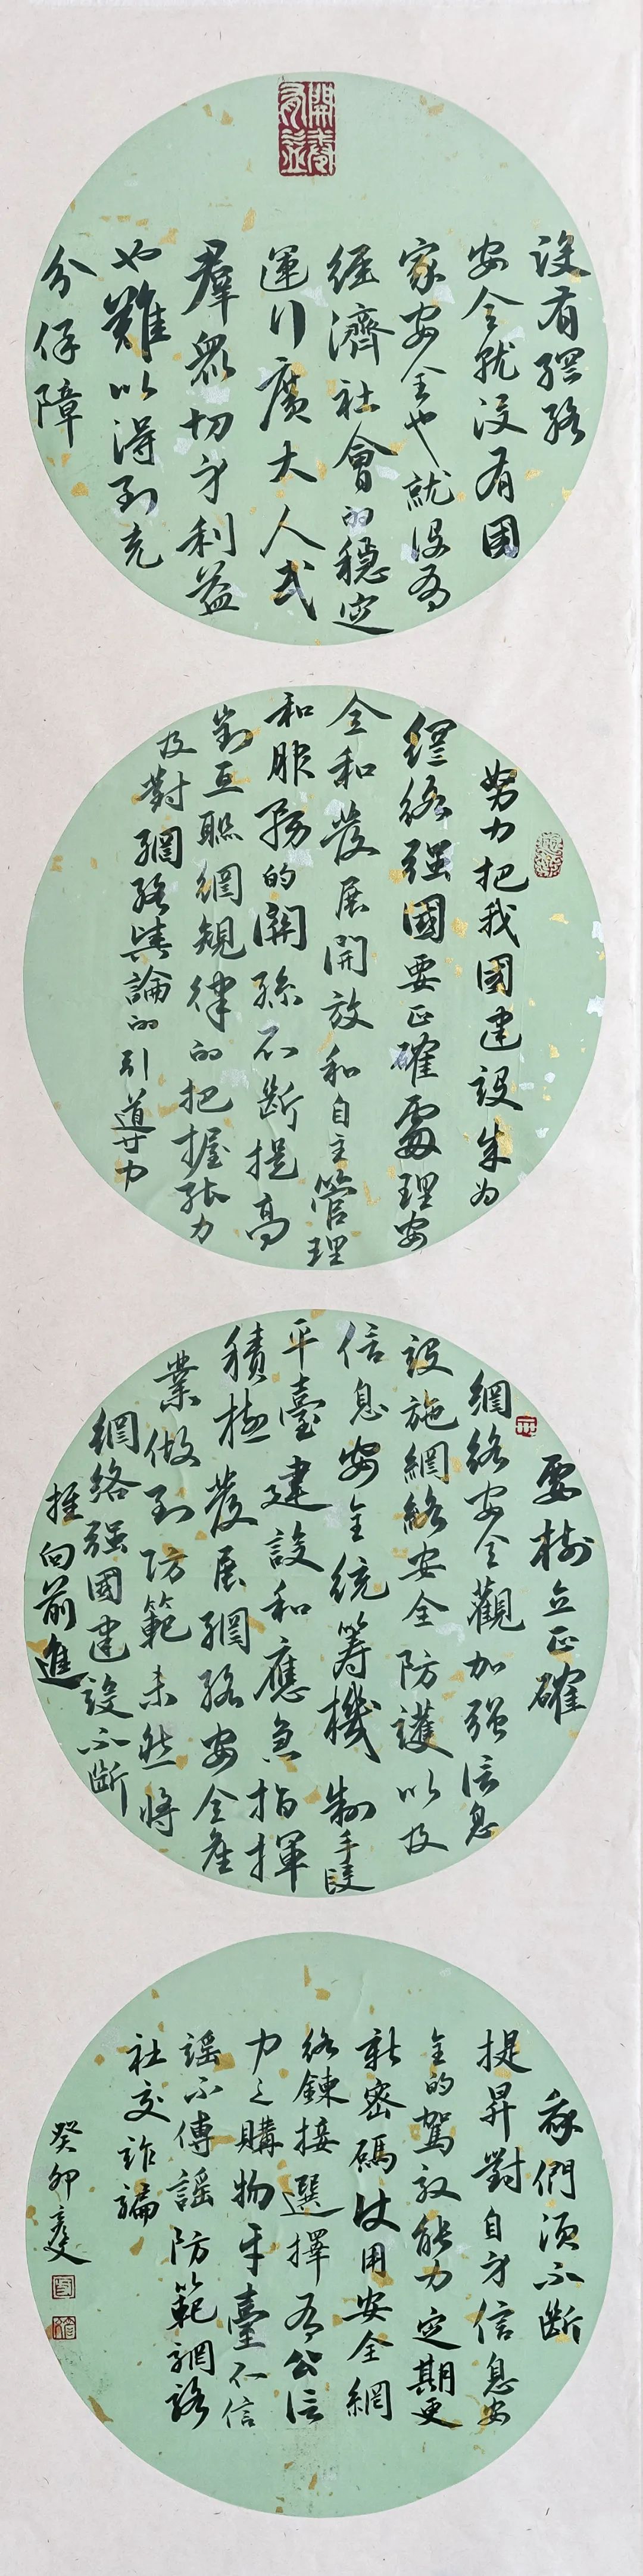 開卷有益
没有網絡
安全就没有國
家安全也就没有
經濟社會的穩定
運行廣大人民
羣衆切身利益
也難以得到充
分保障
努力把我國建設成為
網絡强國要正確處理安
全和發展開放和自主管理
和服務的關係不斷提高
對互聯網規律的把握能力
及對網絡輿論的引導力
要樹立正確
網絡安全觀加强信息
設施網絡安全防護以及
信息安全統籌機制手段
平臺建設和應急指揮
積極發展網絡安全産
業做到防範未然將
網絡强國建設不斷
推向前進
我們須不斷
提昇對自身信息安
全的駕馭能力定期更
新密碼使用安全網
絡鍊接選擇有公信
力之購物平臺不信
謡不傳謡防範網絡
社交詐騙
癸卯